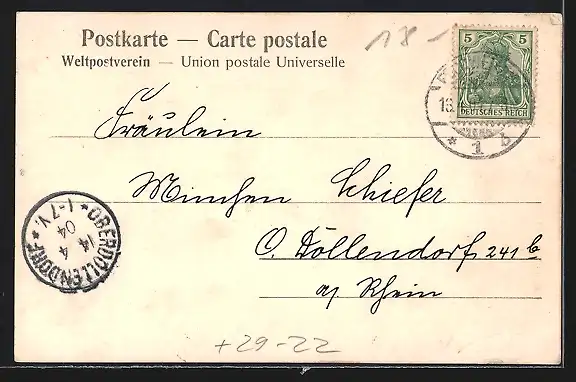 Postkarte — Carte postale
Weltpostverein — Union postale Universelle
18 -
5 5
DEUTSCHES REICH
13
* 1 b
Fräulein
Minchen Schiefer
O. Döllendorf 241 b
a/ Rhein
* OBERDOLLENDORF *
14 4
04
1-7V.
+29-22